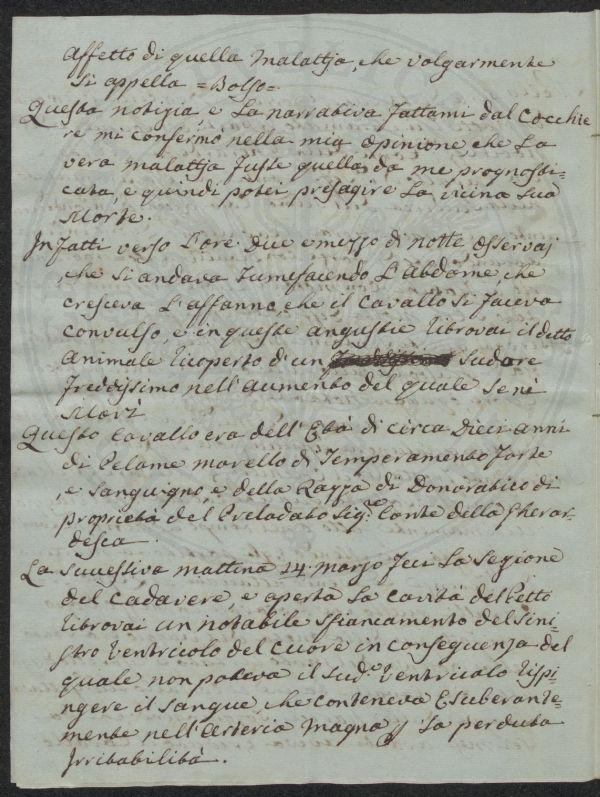 Affetto di quella Malattja, che volgarmente
si appella = Bolso =
Questa notizia, e la narrativa fattami dal Cocchie
re mi confermò nella mia opinione, che la
vera malattja fusse quella da me prognosti=
cata, e quindi potei presagire la vicina sua
Morte.
Jn fatti verso l'ore Dieci e mezzo di notte, osservaj
, che si andava tumefacendo l'Abdome, che
cresceva l'affanno, che il Cavallo si faceva
convulso, e in queste angustie ritrovai il detto
Animale ricoperto d'un sudore
freddissimo nell'aumento del quale se ne
Morì
Questo Cavallo era dell'Età di circa Dieci anni
di Pelame morello di Temperamento forte
, e sanguigno, e della Razza di Donoratico di
proprietà del Prelodato Sigr. Conte della Gherar=
desca.
La sucessiva mattina 14 marzo feci la sezione
del Cadavere, e aperta la cavità del Petto
ritrovai un notabile sfiancamento del Sini=
stro Ventricolo del Cuore in conseguenza del
quale non poteva il sudo. Ventricolo rispi=
ngere il sangue, che conteneva esuberante=
mente nell'Arteria Magna la perduta
jrritabilità.